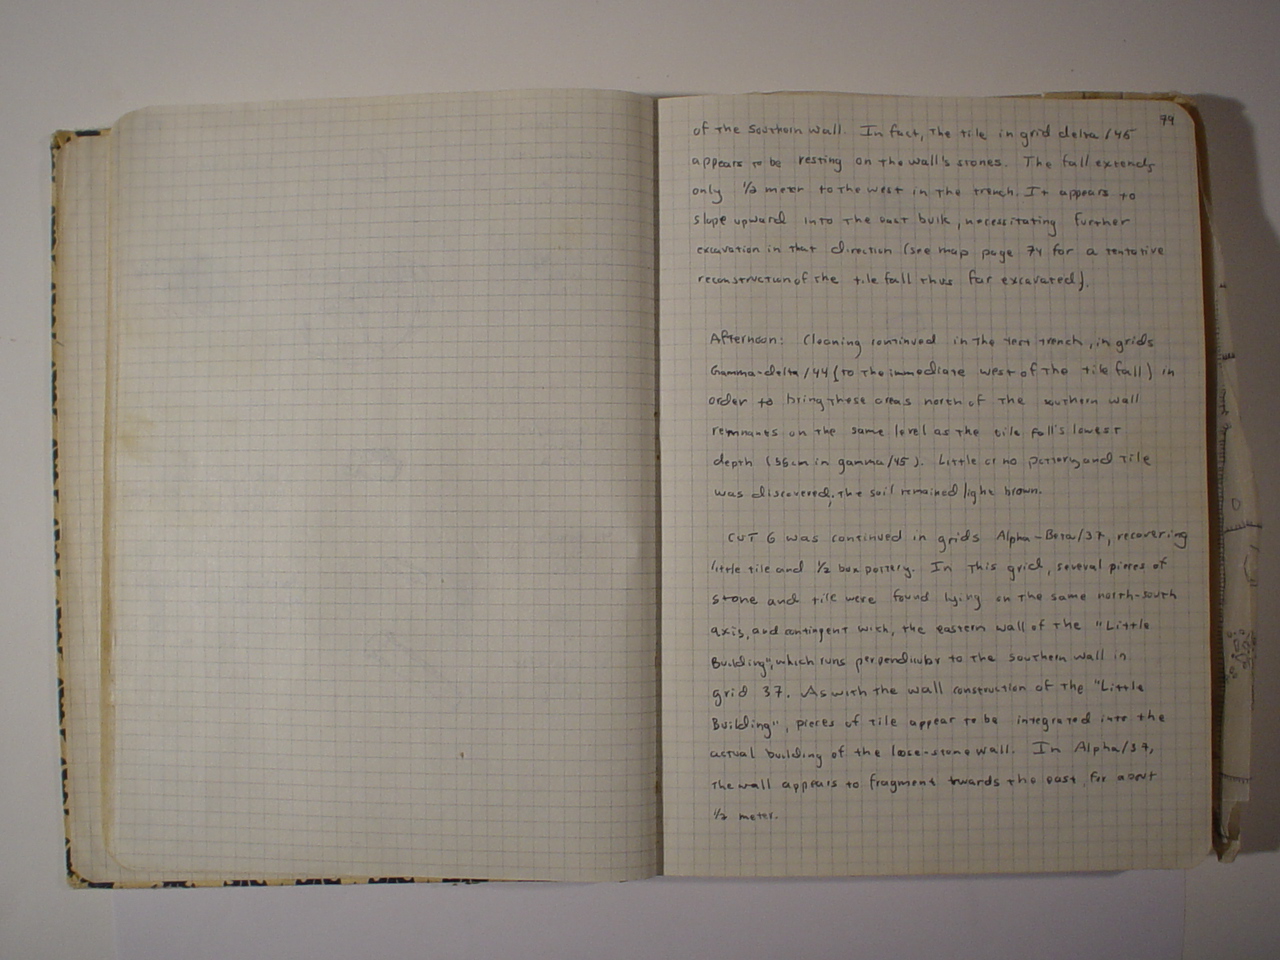 79
of the Southern wall. In fact, the tile in grid delta/45
appears to be resting on the wall's stones. The fall extends
only 1/2 meter to the west in the trench. It appears to
slope upward into the east bulk, necessitating further
excavation in that direction (see map page 74 for a tentative
reconstruction of the tile fall thus far excavated).
Afternoon: Cleaning continued in the test trench, in grids
Gamma-delta/44 (to the immediate west of the tile fall) in
order to bring these areas north of the southern wall
remnants on the same level as the tile fall's lowest
depth (56cm in gamma/45). Little or no pottery and tile
was discovered; the soil remained light brown.
CUT 6 was continued in grids Alpha-Beta/37, recovering
little tile and 1/2 box pottery. In this grid, several pieces of
stone and tile were found lying on the same north-south
axis, and contingent with, the eastern wall of the "Little
Building", which runs perpendicular to the southern wall in
grid 37. As with the wall construction of the "Little
Building", pieces of tile appear to be integrated into the
actual building of the loose-stone wall. In Alpha/37,
the wall appears to fragment towards the east, for about
1/2 meter.